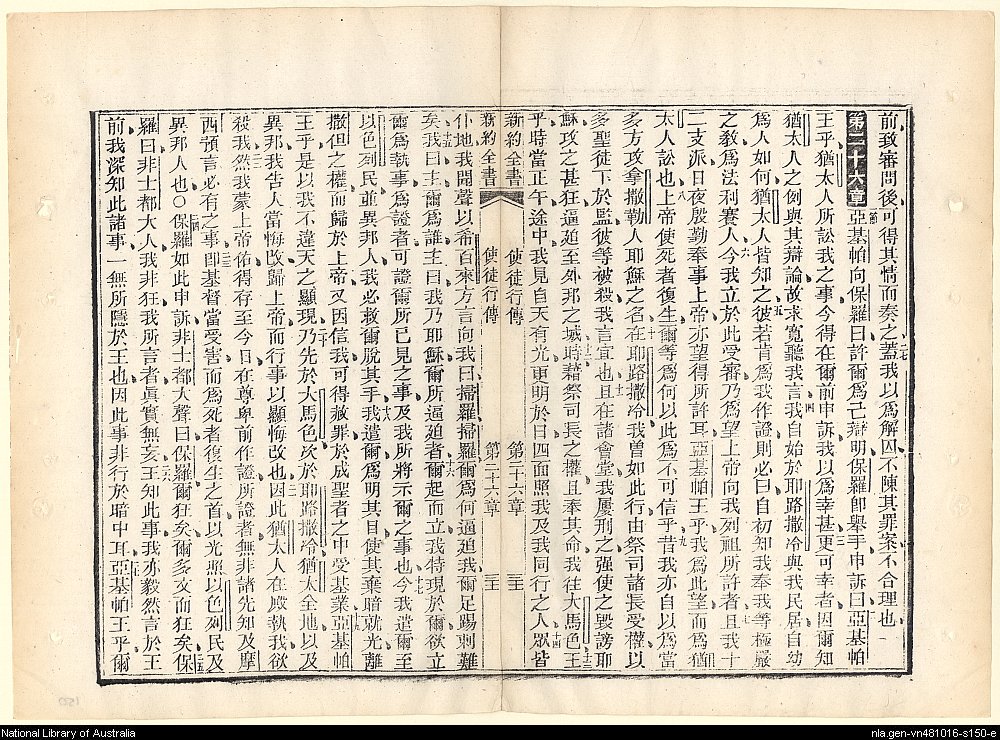 前致審問後可得其情而奏之蓋我以爲解囚不陳其罪案不合理也
二七
第二十六章亞基帕向保羅曰許爾爲己辯明保羅卽舉手申訴曰亞基帕
王乎猶太人所訟我之事今得在爾前申訴我以爲幸甚更可幸者因爾知
猶太人之例與其辯論故求寬聽我言我自始於耶路撒冷與我民居自幼
爲人如何猶太人皆知之彼若肯爲我作證則必曰自初知我奉我等極嚴
之敎爲法利賽人今我立於此受審乃爲望上帝向我列祖所許者且我十
二支派日夜殷勤奉事上帝亦望得所許耳亞基帕王乎我爲此望而爲猶
太人訟也上帝使死者復生爾等爲何以此爲不可信乎昔我亦自以爲當
多方攻拿撒勒人耶穌之名在耶路撒冷我曾如此行由祭司諸長受權以
多聖徒下於監彼等被殺我言宜也且在諸會堂我屢刑之强使之毀謗耶
穌攻之甚狂逼迫至外邦之城時藉祭司長之權且奉其命我往大馬色王
乎時當正午途中我見自天有光更明於日四面照我及我同行之人眾皆
新約全書 使徒行傳 第二十六章
新約全書 使徒行傳 第二十六章
仆地我聞聲以希百來方言向我曰掃羅掃羅爾爲何逼迫我爾足踢刺難
矣我曰主爾爲誰主曰我乃耶穌爾所逼迫者爾起而立我特現於爾欲立
爾爲執事爲證者可證爾所已見之事及我所將示爾之事也今我遣爾至
以色列民並異邦人我必救爾脫其手我遣爾爲明其目使其棄暗就光離
撒但之權而歸於上帝又因信我可得赦罪於成聖者之中受基業亞基帕
王乎是以我不違天之顯現乃先於大馬色次於耶路撒冷猶太全地以及
異邦我告人當悔改歸上帝而行事以顯悔改也因此猶太人在殿執我欲
殺我然我蒙上帝佑得存至今日在尊卑前作證所證者無非諸先知及摩
西預言必有之事卽基督當受害而爲死者復生之首以光照以色列民及
異邦人也○保羅如此申訴非士都大聲曰保羅爾狂矣爾多文而狂矣保
羅曰非士都大人我非狂我所言者眞實無妄王知此事我亦毅然言於王
前我深知此諸事一無所隱於王也因此事非行於暗中耳亞基帕王乎爾
National Library of Australia
nla.gen-vn481016-s150-e